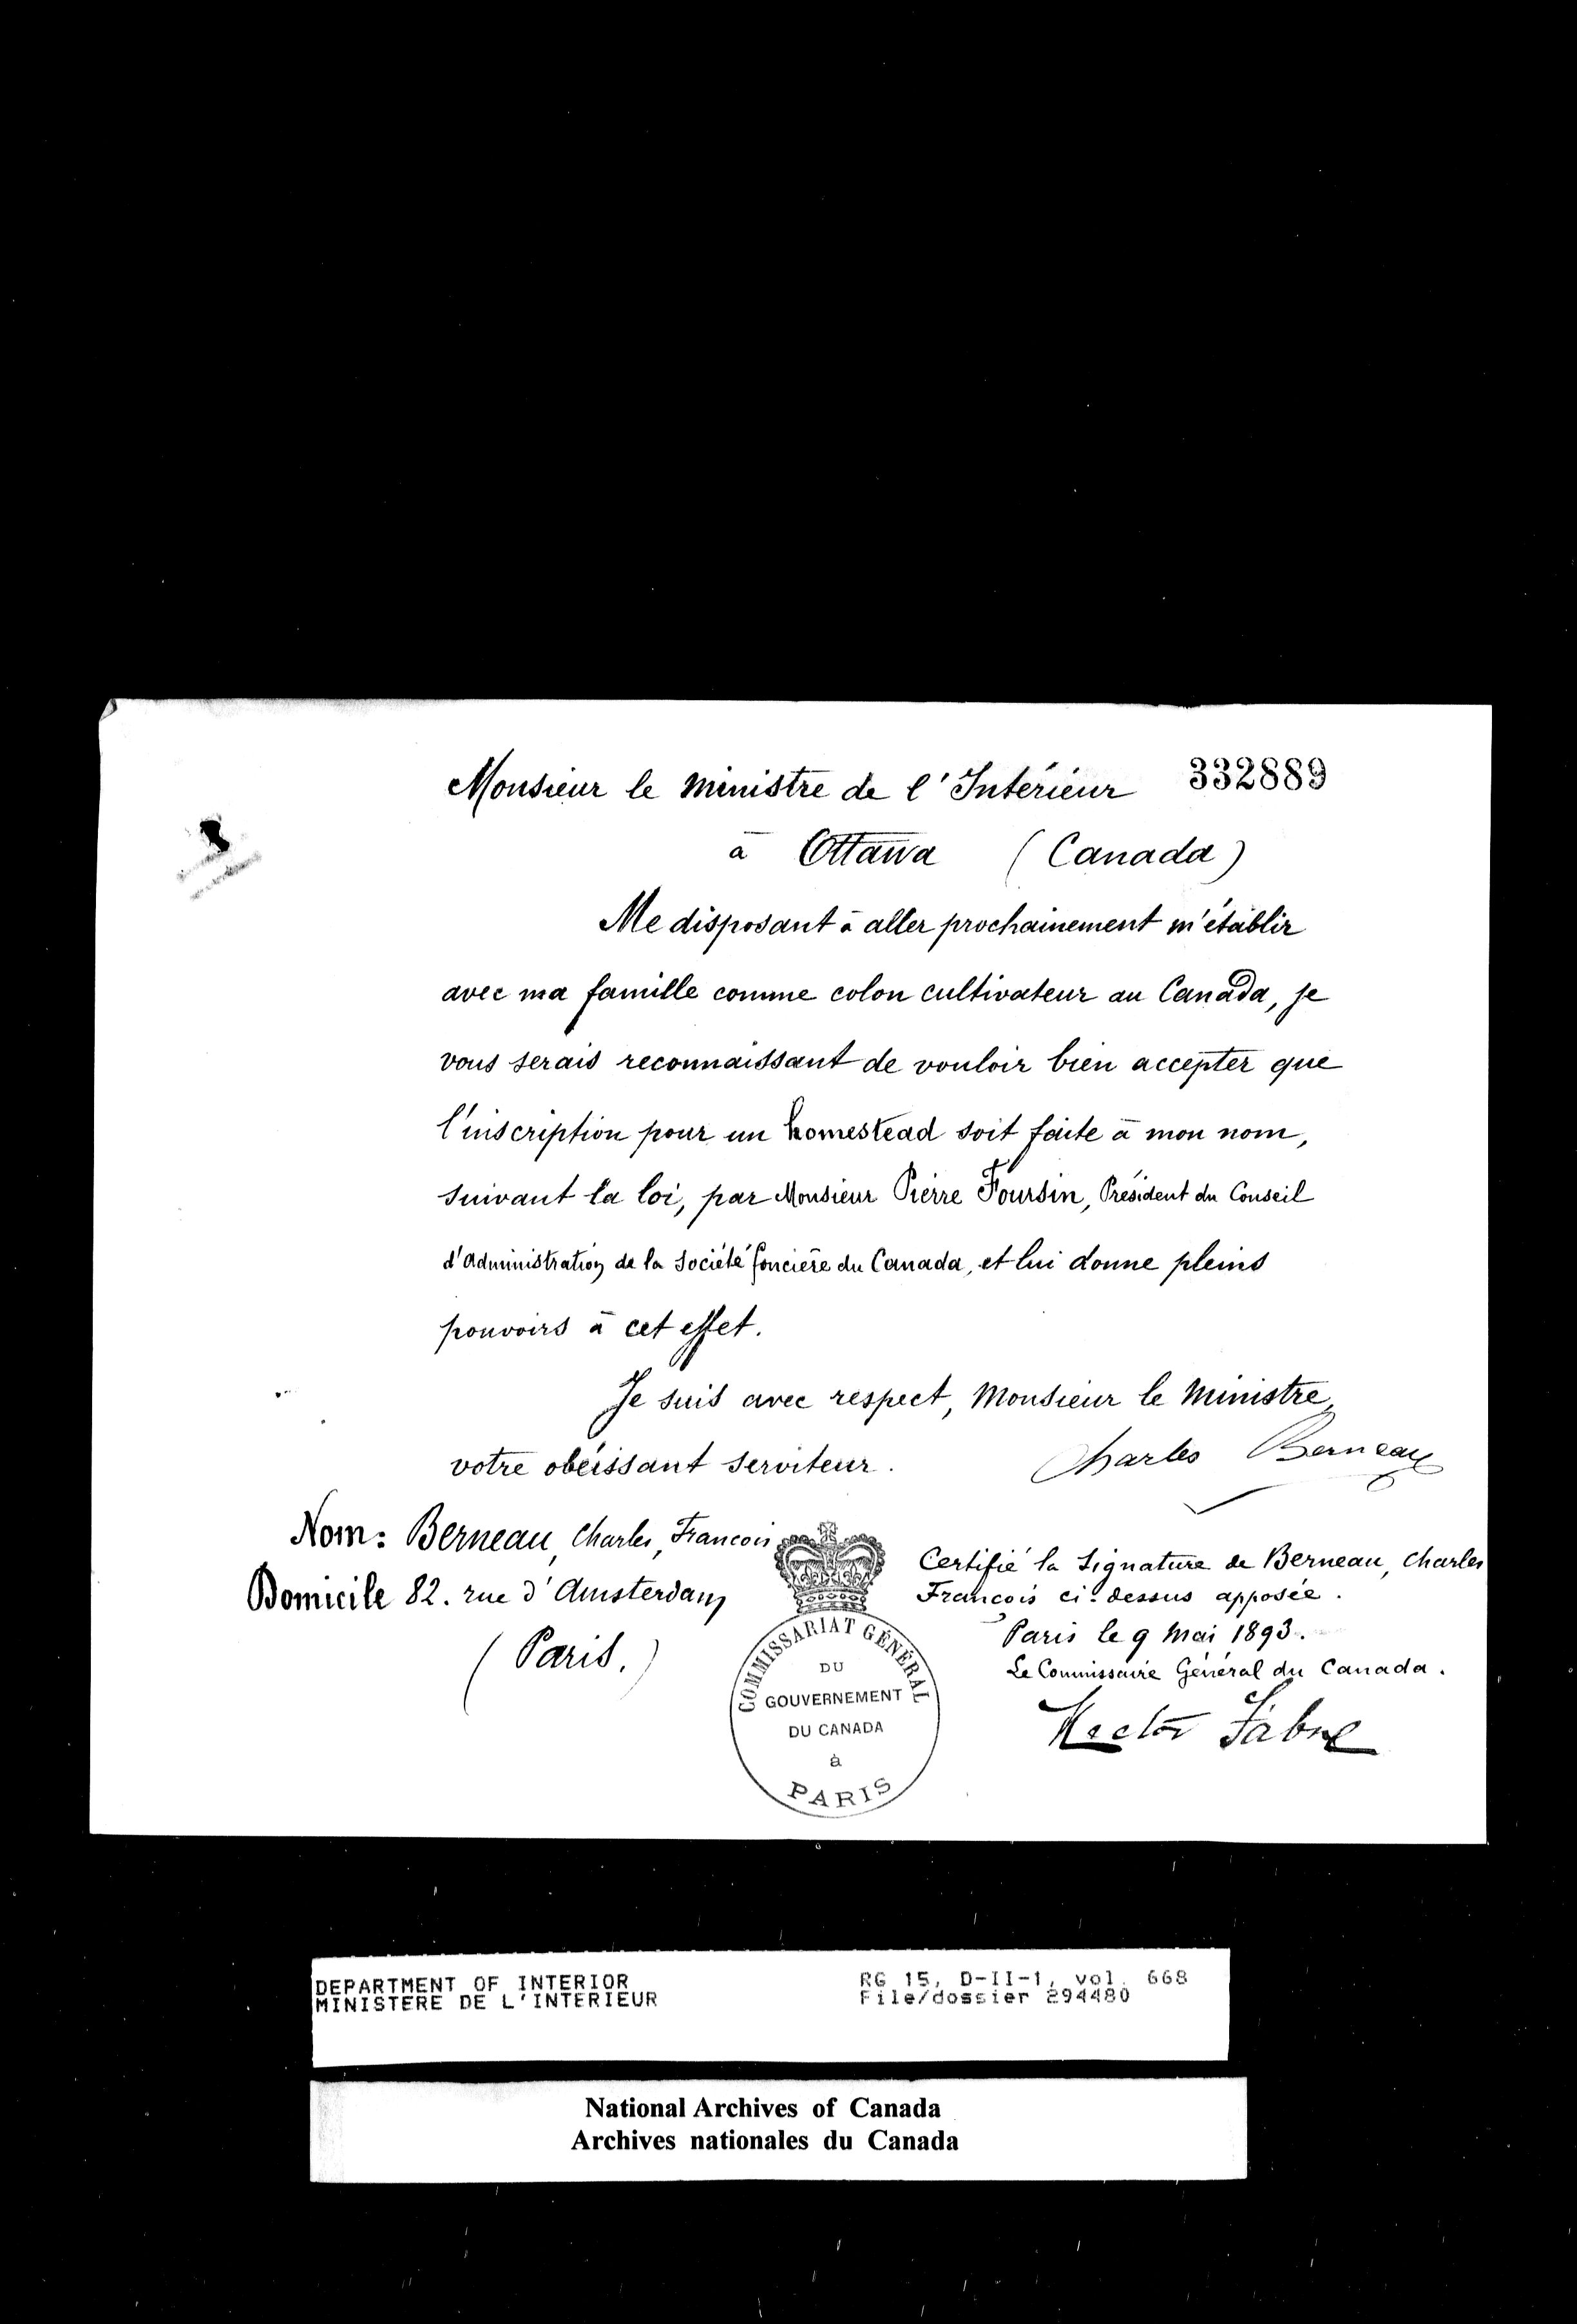 332889
Monsieur le Ministre de l'Intérieur
à Ottawa (Canada)
Me disposant à aller prochainement m'établir
avec ma famille comme colon cultivateur au Canada, je
vous serais reconnaissant de vouloir bien accepter que
l'inscription pour un homestead soit faite à mon nom,
suivant la loi, par Monsieur Pierre Foursin, Président du Conseil
d'Administration de la Société foncière du Canada, et lui donne pleins
pouvoirs à cet effet.
Je suis avec respect, Monsieur le Ministre,
votre obéissant serviteur.
Charles Berneau
Nom: Berneau, Charles, Francois
Domicile 82. rue d'Amsterdam
(Paris.)
COMMISSARIAT GÉNÉRAL
DU
GOUVERNEMENT
DU CANADA
à
PARIS
Certifié la signature de Berneau, Charles
François ci-dessus apposée.
Paris le 9 Mai 1893.
Le Commissaire Général du Canada.
Hector Fabre
DEPARTMENT OF INTERIOR
MINISTERE DE L'INTERIEUR
RG 15, D-II-1, vol. 668
File/dossier 294480
National Archives of Canada
Archives nationales du Canada